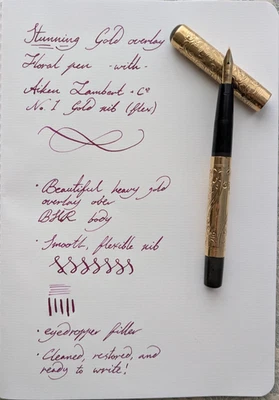 Stunning Gold overlay
Floral pen - with -
Aiken Lambert + Co
No. 1 Gold nib (flex)
· Beautiful heavy gold
overlay over
BHR body
· Smooth, flexible nib
· eyedropper filler
· Cleaned, restored, and
ready to write!